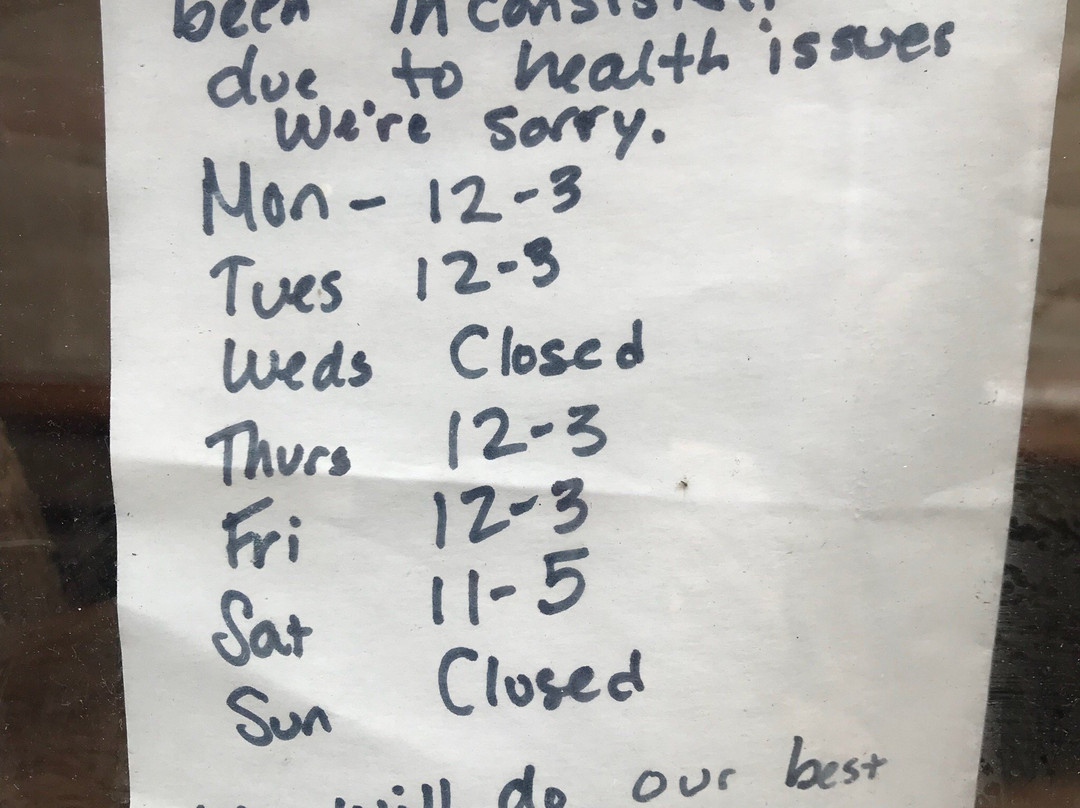 been inconsistent
due to health issues
We're sorry.
Mon - 12-3
Tues 12-3
Weds Closed
Thurs 12-3
Fri 12-3
Sat 11-5
Sun Closed
will do our best